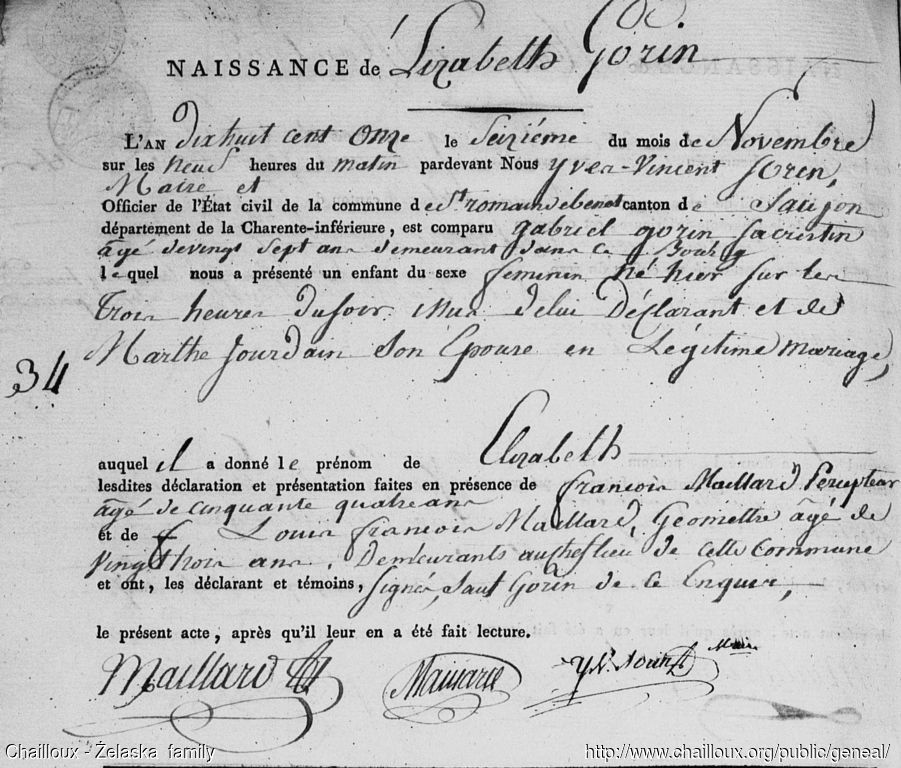 de
NAISSANCE de Lizabeth Gorin
L'AN dixhuit cent Onze le Seiziéme du mois de Novembre
sur les neuf heures du matin pardevant Nous yves-Vincent Sorin,
Maire et
Officier de l'État civil de la commune de St romain de benet canton de Saujon
département de la Charente-inférieure, est comparu gabriel gorin sacristin
âgé de vingt sept ans demeurant dans ce Bourg
lequel nous a présenté un enfant du sexe feminin né hier sur les
trois heures du soir issue de lui Déclarant et de
Marthe Jourdain Son Epouse en Légitime mariage,
34
auquel il a donné le prénom de Elizabeth
lesdites déclaration et présentation faites en présence de francois Maillard Percepteur
âgé de cinquante quatre ans
et de Louis francois Maillard, Geomettre âgé de
Vingt trois ans, Demeurants au chef lieu de cette Commune
et ont, les déclarant et témoins, signés, Sauf Gorin de ce Enquis,
le présent acte, après qu'il leur en a été fait lecture.
Maillard Y.V. Sorin Maire
Chailloux - Żelaska family http://www.chailloux.org/public/geneal/